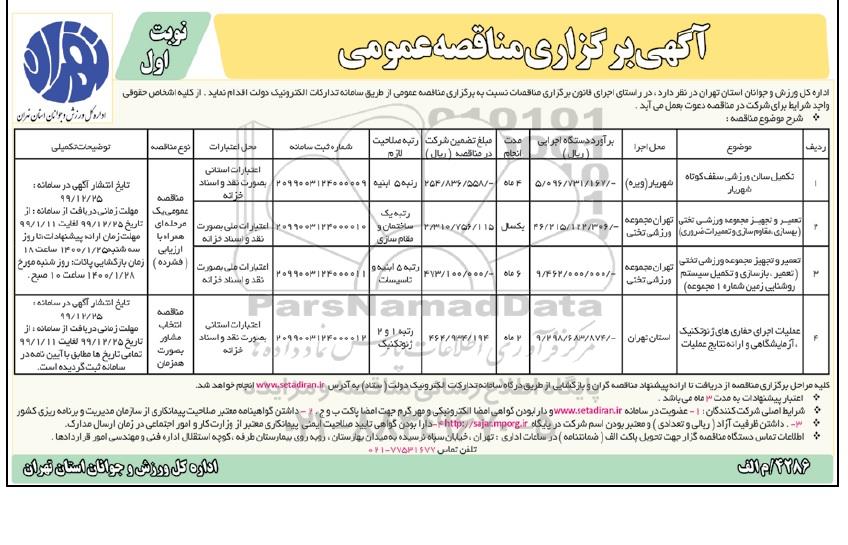 آگهی برگزاری مناقصه عمومی
نوبت اول
تهران
اداره کل ورزش و جوانان استان تهران
اداره کل ورزش و جوانان استان تهران در نظر دارد ، در راستای اجرای قانون برگزاری مناقصات نسبت به برگزاری مناقصه عمومی از طریق سامانه تدارکات الکترونیک دولت اقدام نماید . از کلیه اشخاص حقوقی
واجد شرایط برای شرکت در مناقصه دعوت بعمل می آید .
شرح موضوع مناقصه :
ردیف موضوع محل اجرا برآورد دستگاه اجرایی (ریال) مدت انجام مبلغ تضمین شرکت در مناقصه (ریال) رتبه صلاحیت لازم شماره ثبت سامانه محل اعتبارات نوع مناقصه توضیحات تکمیلی
۱ تکمیل سالن ورزشی سقف کوتاه شهریار شهریار (ویژه) ۵/۰۹۶/۷۳۱/۱۶۷/- ۴ ماه ۲۵۴/۸۳۶/۵۵۸/- رتبه ۵ ابنیه ۲۰۹۹۰۰۳۱۲۴۰۰۰۰۰۹ اعتبارات استانی بصورت نقد و اسناد خزانه
۲ تعمیر و تجهیز مجموعه ورزشی تختی (بهسازی ،مقاوم سازی و تعمیرات ضروری) تهران مجموعه ورزشی تختی ۴۶/۲۱۵/۱۲۲/۳۰۶/- یکسال ۲/۳۱۰/۷۵۶/۱۱۵ رتبه یک ساختمان و مقام سازی ۲۰۹۹۰۰۳۱۲۴۰۰۰۰۱۰ اعتبارات ملی بصورت نقد و اسناد خزانه
۳ تعمیر و تجهیز مجموعه ورزشی تختی (تعمیر ، بازسازی و تکمیل سیستم روشنایی زمین شماره ۱ مجموعه) تهران مجموعه ورزشی تختی ۹/۴۶۲/۰۰۰/۰۰۰/- ۶ ماه ۴۷۳/۱۰۰/۰۰۰/- رتبه ۵ ابنیه و تاسیسات ۲۰۹۹۰۰۳۱۲۴۰۰۰۰۱۱ اعتبارات ملی بصورت نقد و اسناد خزانه
مناقصه عمومی یک مرحله ای همراه با ارزیابی (فشرده)
تایخ انتشار آگهی در سامانه : ۹۹/۱۲/۲۵
مهلت زمانی دریافت از سامانه : از تاریخ ۹۹/۱۲/۲۵ لغایت ۹۹/۱/۱۱
مهلت زمان ارائه پیشنهادات: تا روز سه شنبه ۱۴۰۰/۱/۲۵ ساعت ۱۸
زمان بازگشایی پاکات: روز شنبه مورخ ۱۴۰۰/۱/۲۸ ساعت ۱۰ صبح .
۴ عملیات اجرای حفاری های ژئوتکنیک ، آزمایشگاهی و ارائه نتایج عملیات استان تهران ۹/۲۹۸/۶۸۳/۸۷۴/- ۲ ماه ۴۶۴/۹۳۴/۱۹۴ رتبه ۱ و ۲ ژئوتکنیک ۲۰۹۹۰۰۳۱۲۴۰۰۰۰۱۲ اعتبارات استانی بصورت نقد و اسناد خزانه مناقصه انتخاب مشاور بصورت همزمان
تایخ انتشار آگهی در سامانه : ۹۹/۱۲/۲۵
مهلت زمانی دریافت از سامانه : از تاریخ ۹۹/۱۲/۲۵ لغایت ۹۹/۱/۱۱
تمامی تاریخ ها مطابق با آیین نامه در سامانه ثبت گردیده است.
کلیه مراحل برگزاری مناقصه از دریافت تا ارائه پیشنهاد مناقصه گران و بازگشایی از طریق درگاه سامانه تدارکات الکترونیک دولت (ستاد) به آدرس www.setadiran.ir انجام خواهد شد.
اعتبار پیشنهادات به مدت ۳ ماه می باشد .
شرایط اصلی شرکت کنندگان : ۱- عضویت در سامانه www.setadiran.ir و دارا بودن گواهی امضا الکترونیکی و مهر گرم جهت امضا پاکت ب و ج . ۲- داشتن گواهینامه معتبر صلاحیت پیمانکاری از سازمان مدیریت و برنامه ریزی کشور
۳- . داشتن ظرفیت آزاد ( ریالی و تعدادی ) و معتبر بودن اسم شرکت در پایگاه http://sajar.mporg.ir ۴-دارا بودن گواهی تایید صلاحیت ایمنی پیمانکاری معتبر از وزارت کار و امور اجتماعی در زمان ارسال مدارک.
اطلاعات تماس دستگاه مناقصه گزار جهت تحویل پاکت الف ( ضمانتنامه ) در ساعات اداری : تهران ، خیابان سپاه نرسیده به میدان بهارستان ، روبه روی بیمارستان طرفه ، کوچه استقلال اداره فنی و مهندسی امور قراردادها .
تلفن تماس ۷۷۵۳۱۶۷۷-۰۲۱
اداره کل ورزش و جوانان استان تهران
۴۲۸۶/م الف
ParsNamadData